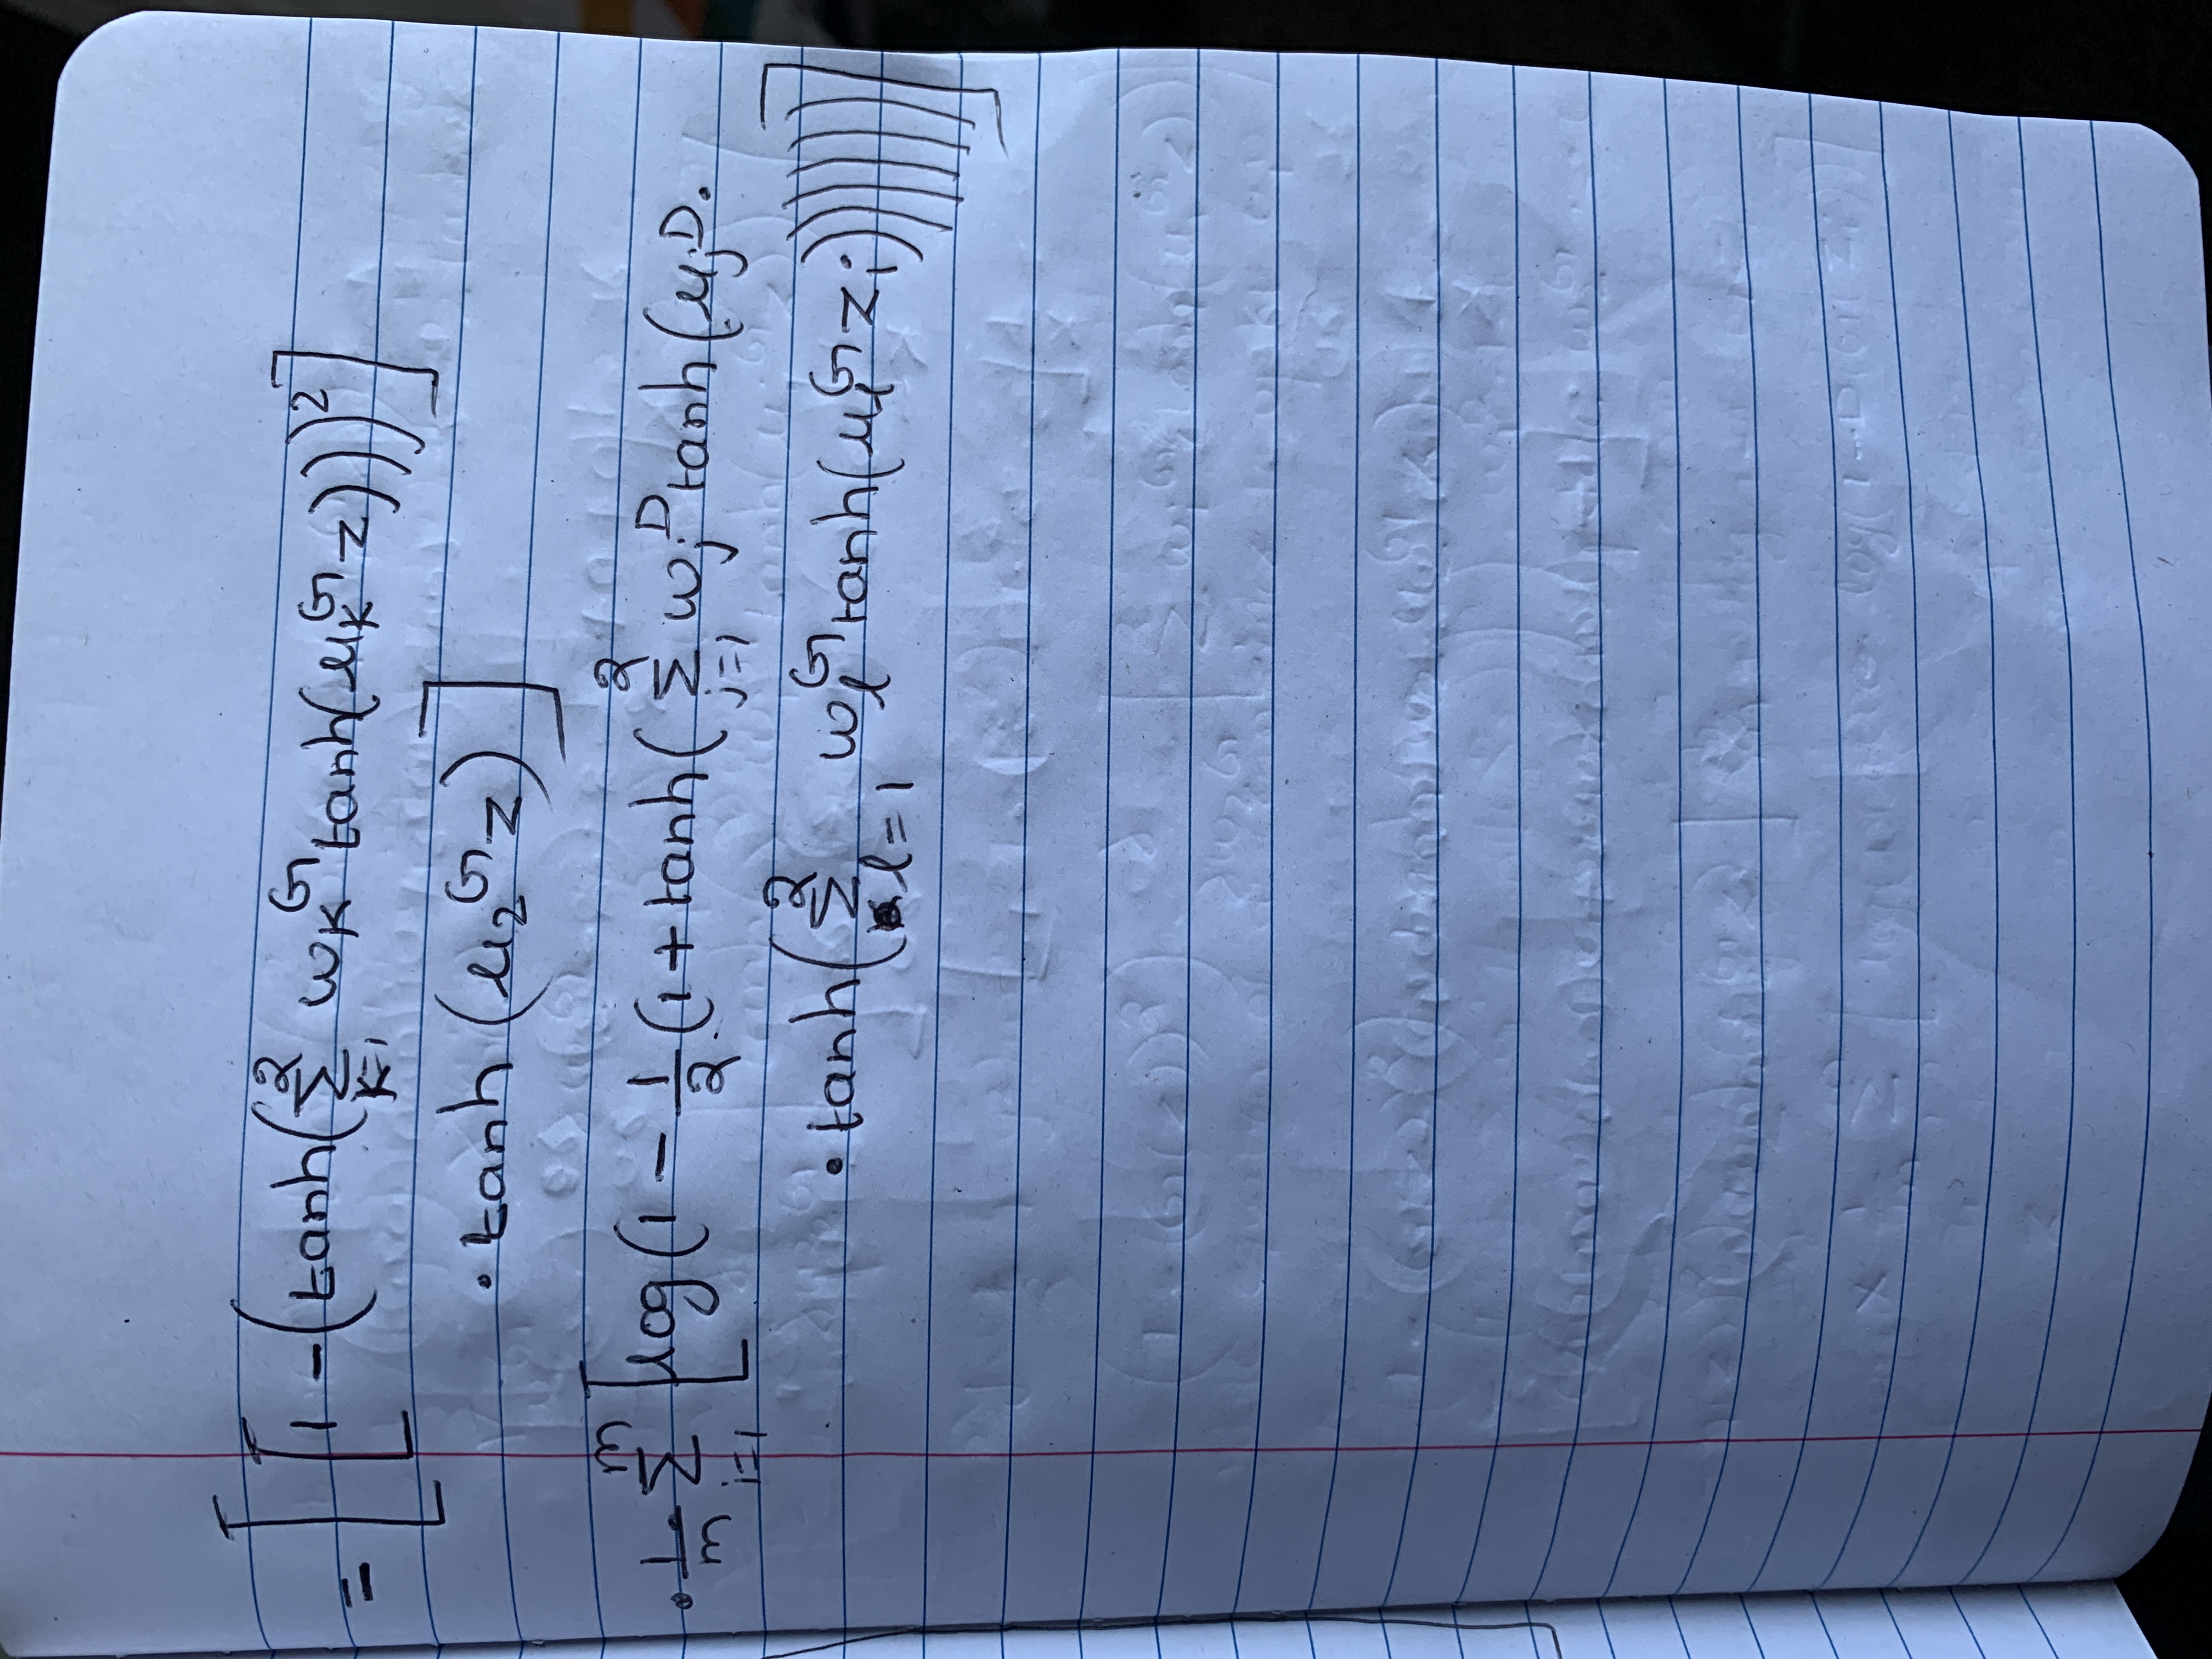 = [[1 - (tanh(∑_{k=1}^{2} w_k^G tanh(u_k^G z)))^2]
· tanh (u_2^G z)]
· 1/m ∑_{i=1}^{m} [log(1 - 1/2 (1 + tanh(∑_{j=1}^{2} w_j^D tanh(u_j^D ·
· tanh(∑_{l=1}^{2} w_l^G tanh(u_l^G z_i)))))))]